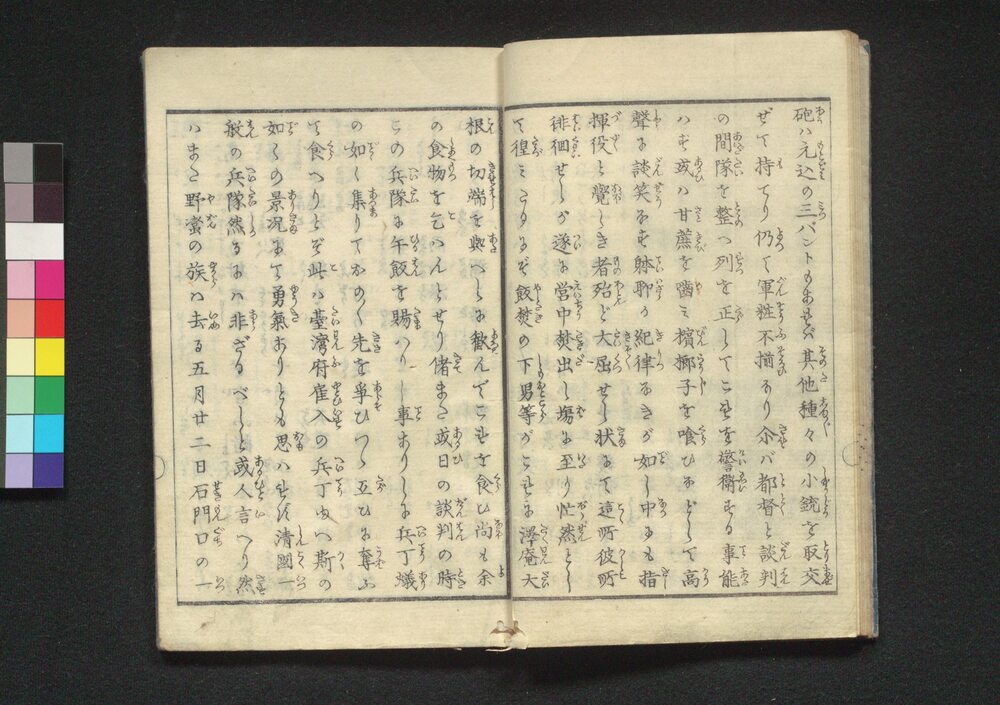 砲ハ元込の三バンドもあれバ其他種々の小銃を取交
ぜて持てり仍て軍粧不揃なり尒バ都督と談判
の間隊を整へ列を正してこれを警衛する事能
ハず或ハ甘蔗を嚼ミ擯榔子を喰ひなどして高
聲に談笑なす躰聊か紀律なきが如し中にも指
揮役と覺しき者殆ど大屈せし状にて這所彼所
徘徊せしが遂に営中焚出し塲に至り忙然とし
て徨ミこるるぞ飯焚の下男等がこれに澤庵大
根の切端を與へしに歓んでこれを食ひ尚も余
の食物を乞ハんとせり偖また或日の談判の時
この兵隊に午飯を賜ハりし事ありしに兵丁蟻
の如く集りておの〳〵先を爭ひつゝ互ひに奪ふ
て食へりとぞ此ハ臺湾府雇入の兵丁ゆへ斯の
如くの景况にて勇氣ありとも思ハれず清國一
般の兵隊然るにハ非ざるべしと或人言へり然
ハまた野蛮の族ハ去る五月廿二日石門口の一